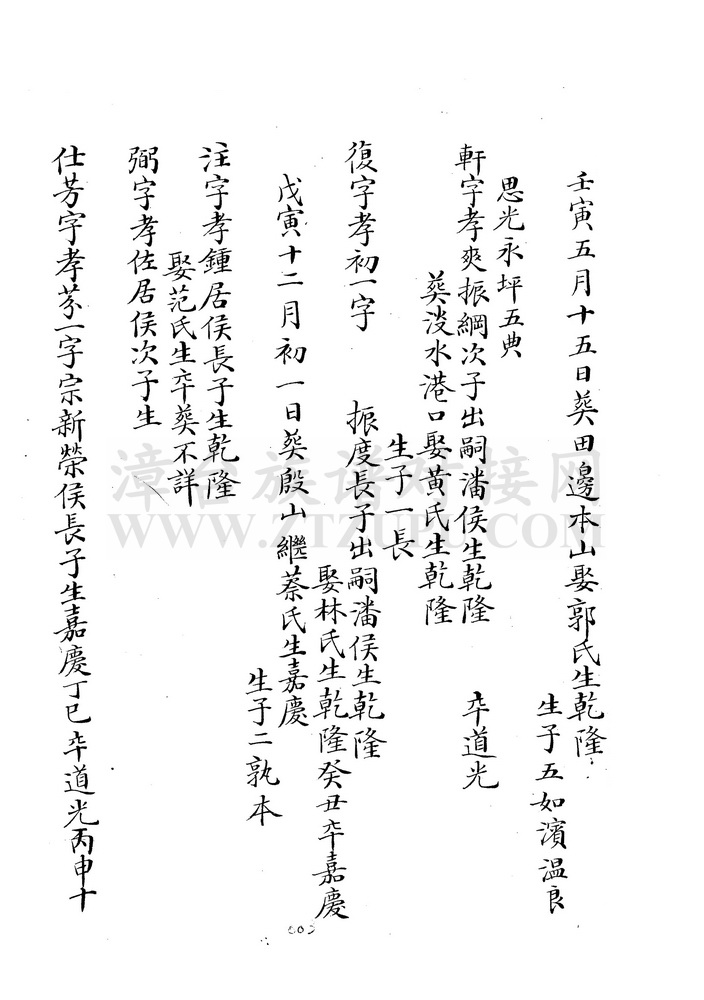 壬寅五月十五日葬田邊本山娶郭氏生乾隆
生子五如濱溫良
思光永坪五典
軒字孝爽振綱次子出嗣潘侯生乾隆 卒道光
葬淡水港口娶黃氏生乾隆
生子一長
復字孝初一字 振度長子出嗣潘侯生乾隆
娶林氏生乾隆癸丑卒嘉慶
戊寅十二月初一日葬殷山繼蔡氏生嘉慶
生子二孰本
注字孝鍾居侯長子生乾隆
娶范氏生卒葬不詳
弼字孝佐居侯次子生
仕芳字孝芬一字宗新榮侯長子生嘉慶丁巳卒道光丙申十
漳台族谱对接网
WWW.ZTZUPU.COM